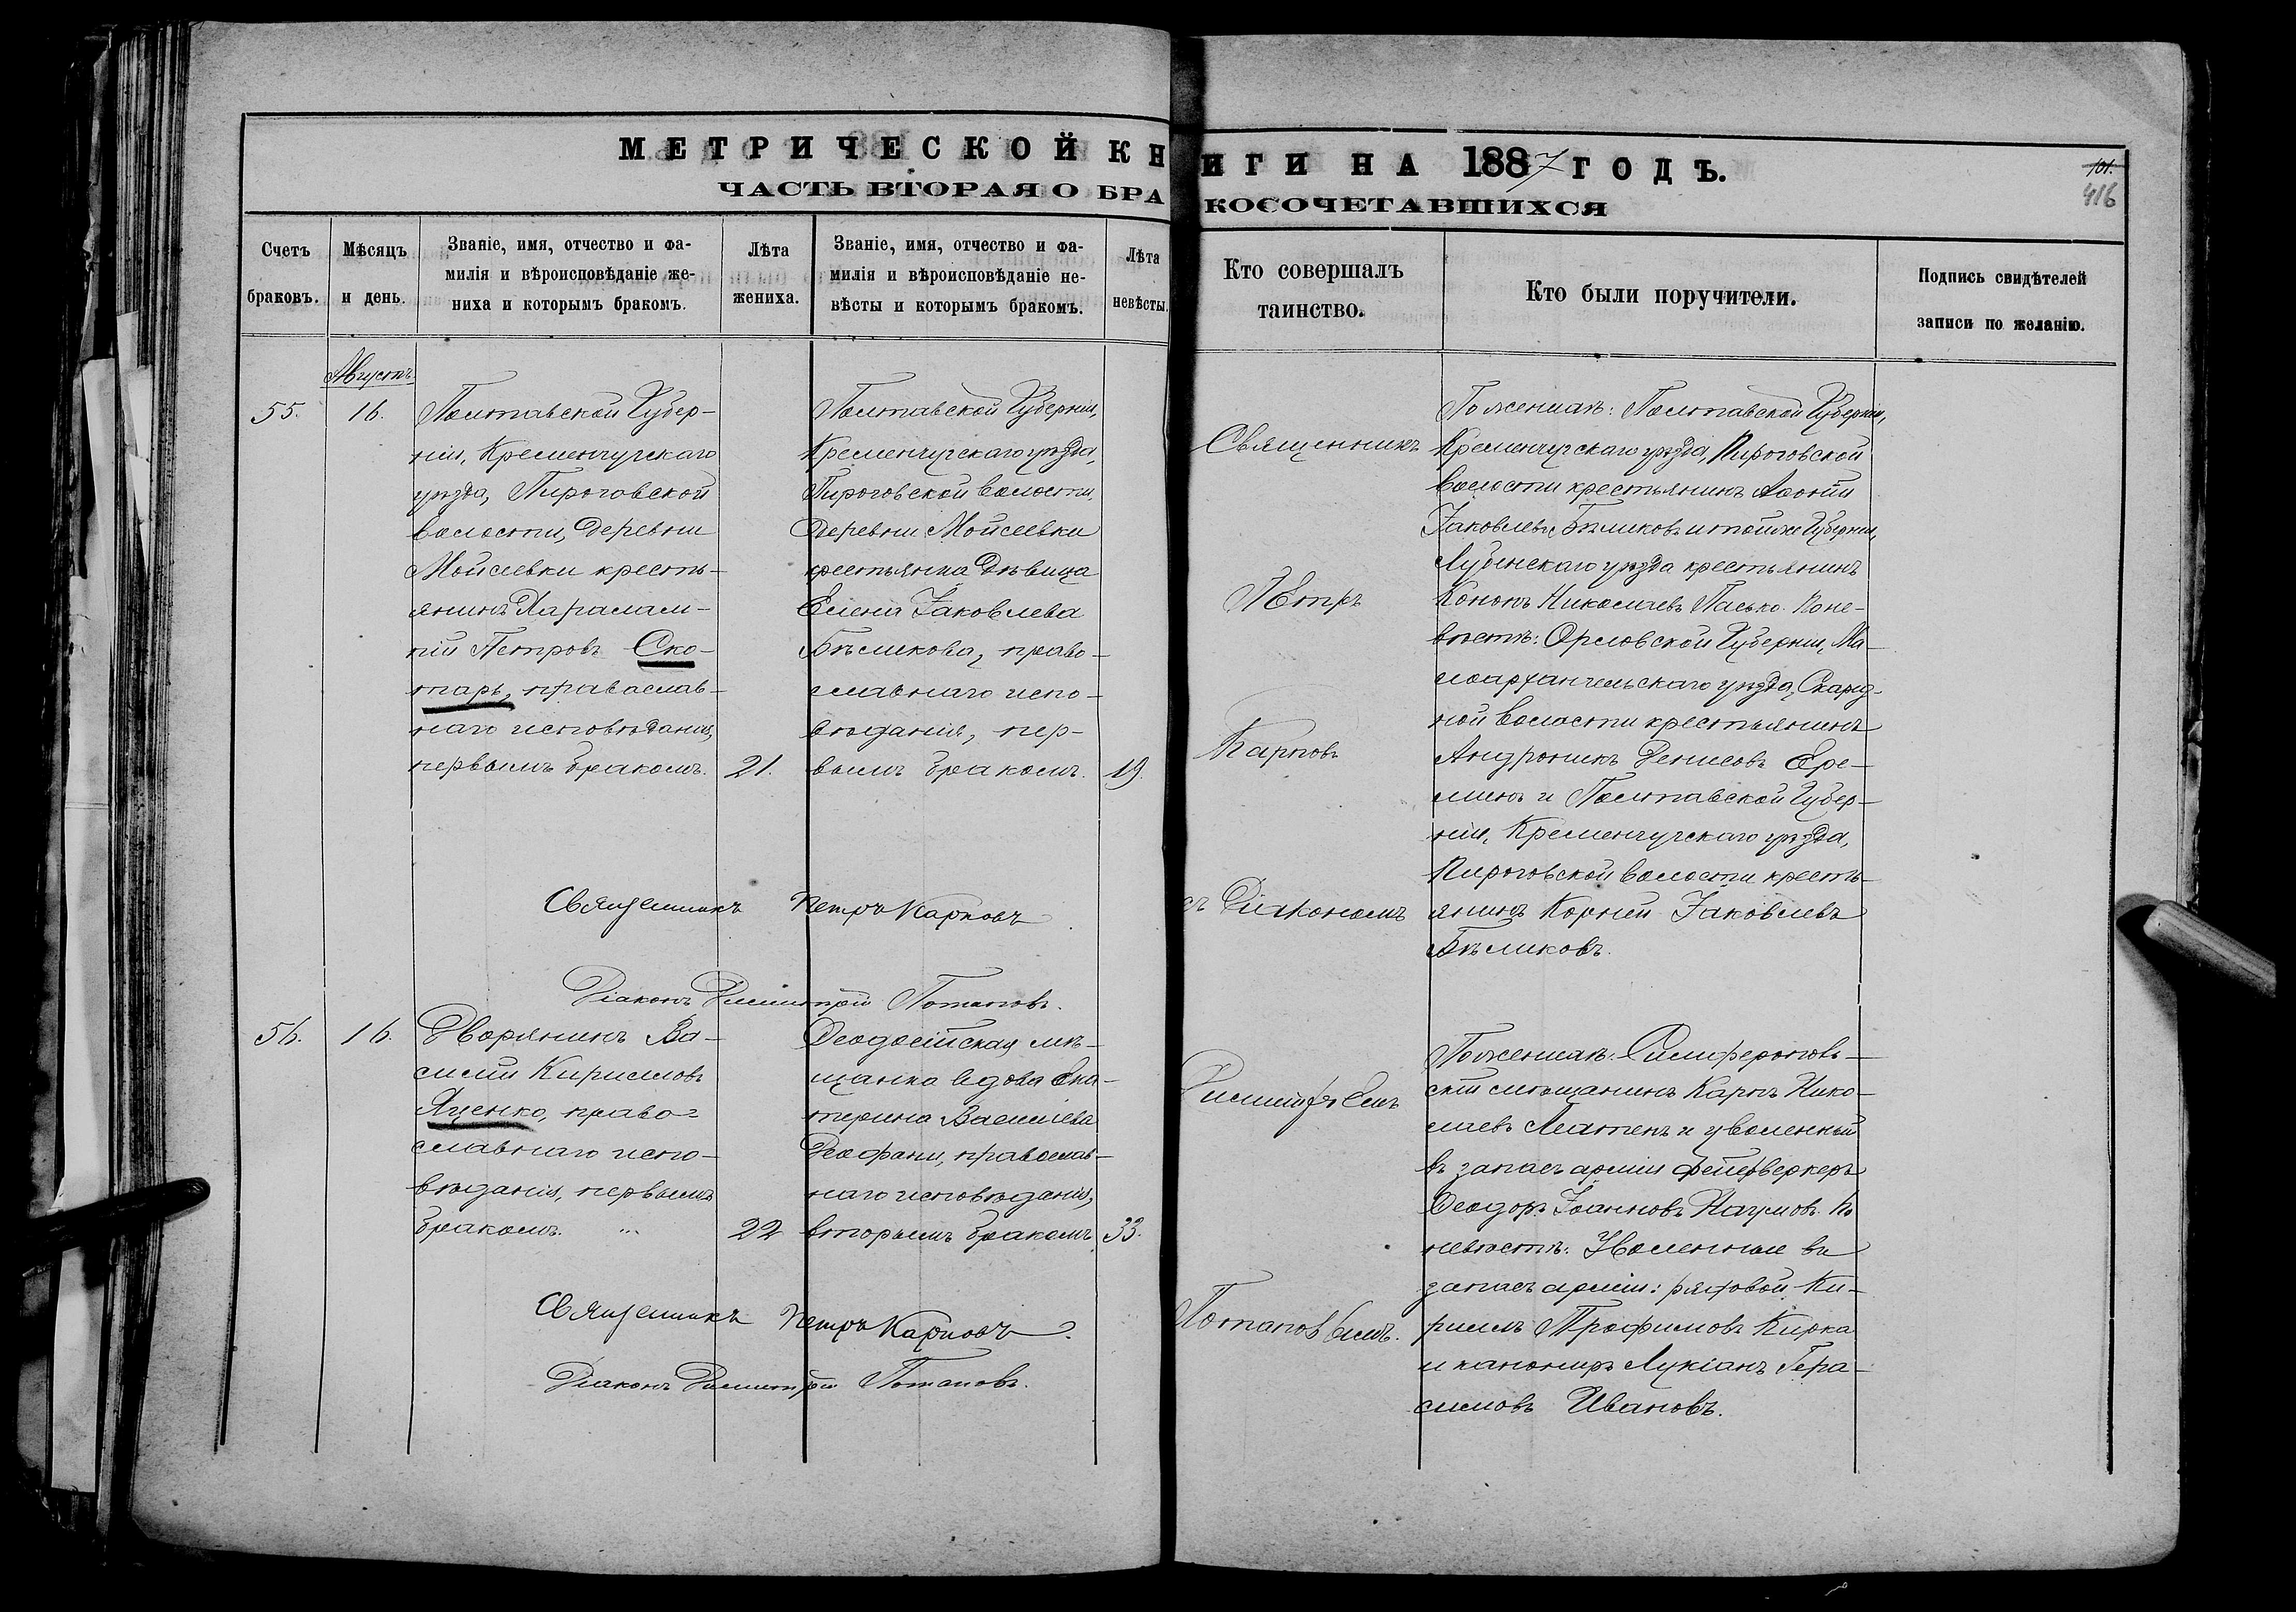 МЕТРИЧЕСКОЙ КНИГИ НА 1887 ГОДЪ.
ЧАСТЬ ВТОРАЯ О БРАКОСОЧЕТАВШИХСЯ
101.
416
Счетъ браковъ.
Мѣсяцъ и день.
Званіе, имя, отчество и фа-
милія и вѣроисповѣданіе же-
ниха и которымъ бракомъ.
Лѣта жениха.
Званіе, имя, отчество и фа-
милія и вѣроисповѣданіе не-
вѣсты и которымъ бракомъ.
Лѣта невѣсты.
Кто совершалъ
таинство.
Кто были поручители.
Подпись свидѣтелей
записи по желанію.
Августъ
55.
16.
Полтавской Губер-
ніи, Кременчугскаго
уѣзда, Пироговской
волости, деревни
Мойсеевки кресть-
янинъ Харалам-
пій Петровъ Ско-
тарь, православ-
наго исповѣданія,
первымъ бракомъ.
21.
Полтавской Губерніи,
Кременчугскаго уѣзда,
Пироговской волости,
деревни Мойсеевки
крестьянка дѣвица
Елена Іаковлева
Бѣликова, право-
славнаго испо-
вѣданія, пер-
вымъ бракомъ.
19.
Священникъ
Петръ
Карповъ
съ Діакономъ
По женихѣ: Полтавской Губерніи,
Кременчугскаго уѣзда, Пироговской
волости крестьянинъ
Іаковлевъ Бѣликовъ и тойже Губерніи,
Лубенскаго уѣзда крестьянинъ
Кононъ Николаевъ Пасько. По не-
вѣстѣ: Орловской Губерніи, Ма-
лоархангельскаго уѣзда,
ной волости крестьянинъ
Андроникъ Денисовъ Ере-
минъ и Полтавской Губер-
ніи, Кременчугскаго уѣзда,
Пироговской волости кресть-
янинъ Корній Іаковлевъ
Бѣликовъ.
Священникъ Петръ Карповъ
Діаконъ Димитрій Потаповъ.
56.
16.
Дворянинъ Ва-
силій Кирилловъ
Яценко, право-
славнаго испо-
вѣданія, первымъ
бракомъ.
22
Ѳеодосійская мѣ-
щанка вдова Ека-
терина Васильева
Ѳеофани, православ-
наго исповѣданія,
вторымъ бракомъ.
33.
Димитріемъ
Потаповымъ.
По женихѣ: Симферополь-
скій мѣщанинъ Карпъ Нико-
лаевъ и уволенный
въ запасъ арміи фейерверкеръ
Ѳеодоръ Іоанновъ Наумовъ. По
невѣстѣ: Уволенные въ
запасъ арміи: рядовой Ки-
риллъ Трофимовъ Кирка
и канониръ Лукіанъ Гера-
симовъ Ивановъ.
Священникъ Петръ Карповъ.
Діаконъ Димитрій Потаповъ.